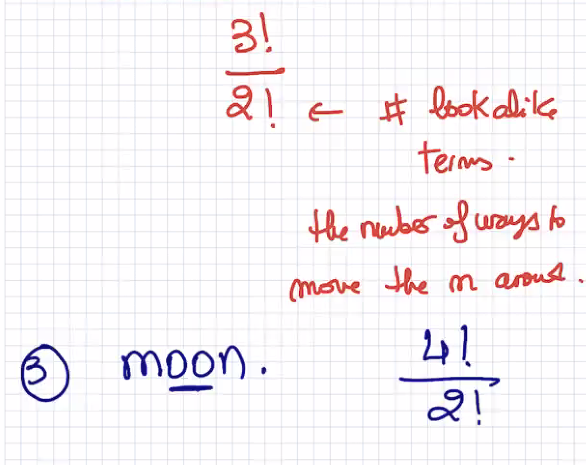 3!
2! ← # look alike
terms.
the number of ways to
move the m around.
③ moon. 4!
2!